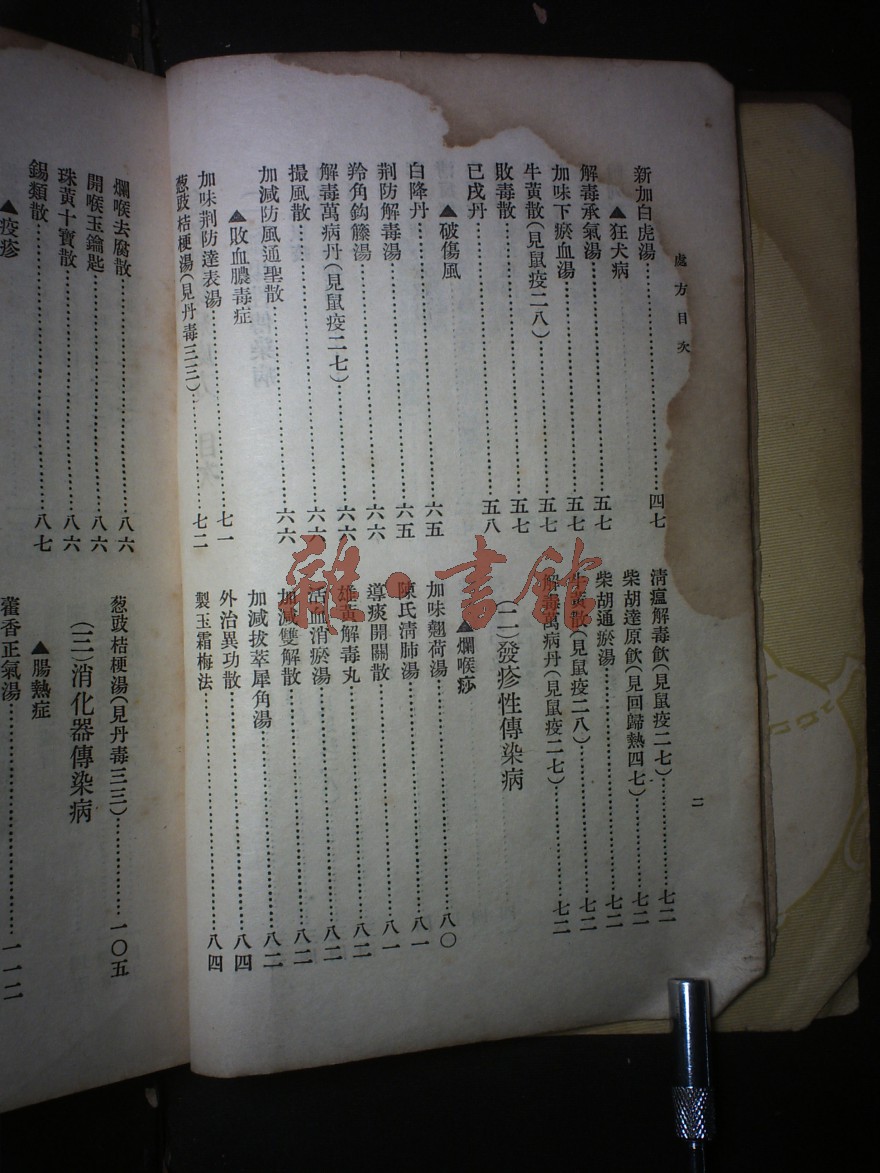 處方目次
二
新加白虎湯……四七
▲狂犬病
解毒承氣湯……五七
加味下瘀血湯……五七
牛黃散(見鼠疫二八)……五七
敗毒散……五七
已戌丹……五八
▲破傷風
白降丹……六五
荆防解毒湯……六五
羚角鈎籐湯……六六
解毒萬病丹(見鼠疫二七)……六六
撮風散……六六
加減防風通聖散……六六
▲敗血膿毒症
加味荆防達表湯……七一
葱豉桔梗湯(見丹毒三三)……七二
清瘟解毒飲(見鼠疫二七)……七二
柴胡達原飲(見回歸熱四七)……七二
柴胡下瘀湯……七二
牛黃散(見鼠疫二八)……七二
解毒萬病丹(見鼠疫二七)……七二
(二)發疹性傳染病
▲爛喉痧
加味翹荷湯……八〇
陳氏清肺湯……八一
導痰開關散……八一
雄黃解毒丸……八二
活血消瘀湯……八二
加減雙解散……八二
加減拔萃犀角湯……八二
外治異功散……八四
製玉霜梅法……八四
爛喉去腐散……八六
開喉玉鑰匙……八六
珠黃十寶散……八六
錫類散……八七
▲疫疹
葱豉桔梗湯(見丹毒三三)……一〇五
(三)消化器傳染病
▲腸熱症
藿香正氣湯……一一二
雜·書館